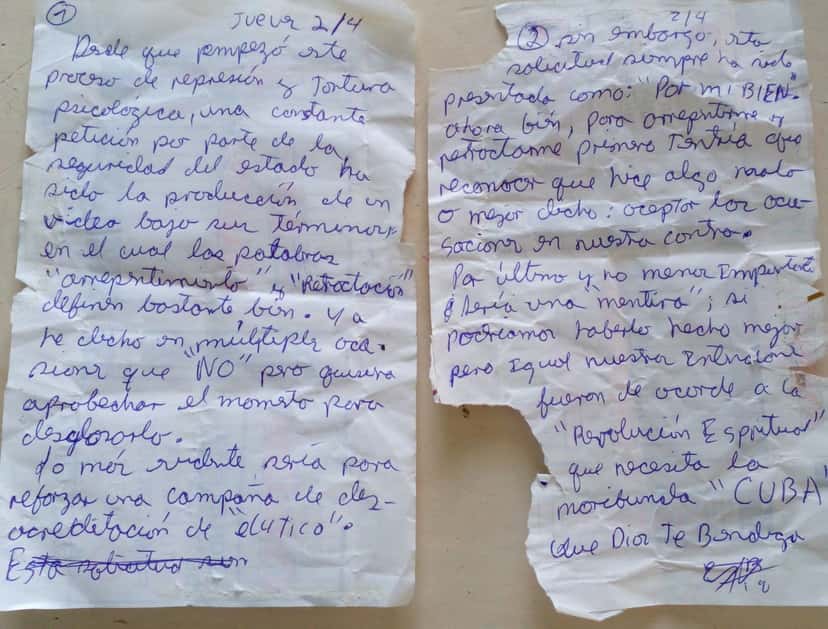 1
Jueves 2/4
Desde que empezó este
proceso de represión y tortura
psicologica, una constante
petición por parte de la
seguridad del estado ha
sido la producción de un
video bajo sus términos,
en el cual las palabras
"arrepentimiento" y "Retractación"
definen bastante bien. Ya
he dicho en múltiples oca-
siones que "NO" pero quisiera
aprobechar el momento para
desglosarlo.
Lo más evidente, sería para
reforzar una campaña de des-
acreditación de "el4tico".
Esta solicitud sin
2/4
2 sin embargo, esta
solicitud siempre ha sido
presentada como: "Por mi BIEN".
ahora bién, para arrepentirme y
retractarme primero Tentría que
reconocer que hice algo malo
o mejor dicho: aceptar las acu-
saciones en nuestra contra.
Por último y no menos Importante
Sería una "mentira"; si
podriamos haberlo hecho mejor
pero Igual nuestras Intenciones
fueron de acorde a la
"Revolución Espritual"
que necesita la
moribunda "CUBA"
Que Dios Te Bendiga